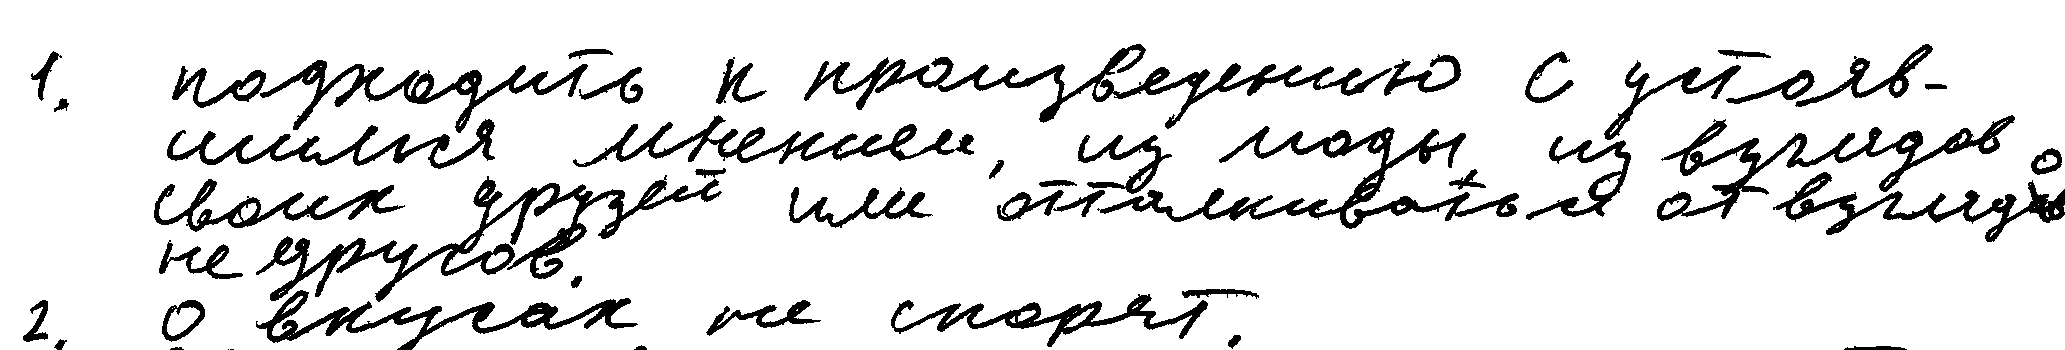 1. подходить к произведению с устояв-
шимся мнением, из моды, из взглядов
своих друзей или отталкиваться от взглядов
недругов.
2. О вкусах не спорят.